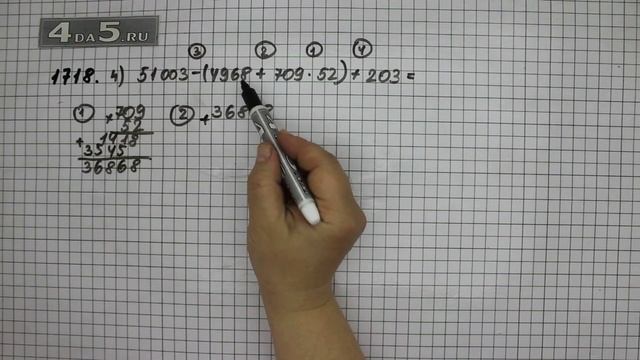 4ДА5.RU
③ ② ① ④
1718. 4) 51003-(4968+709·52)+203=
① ×709 ② +368
52
+1418
3545
36868